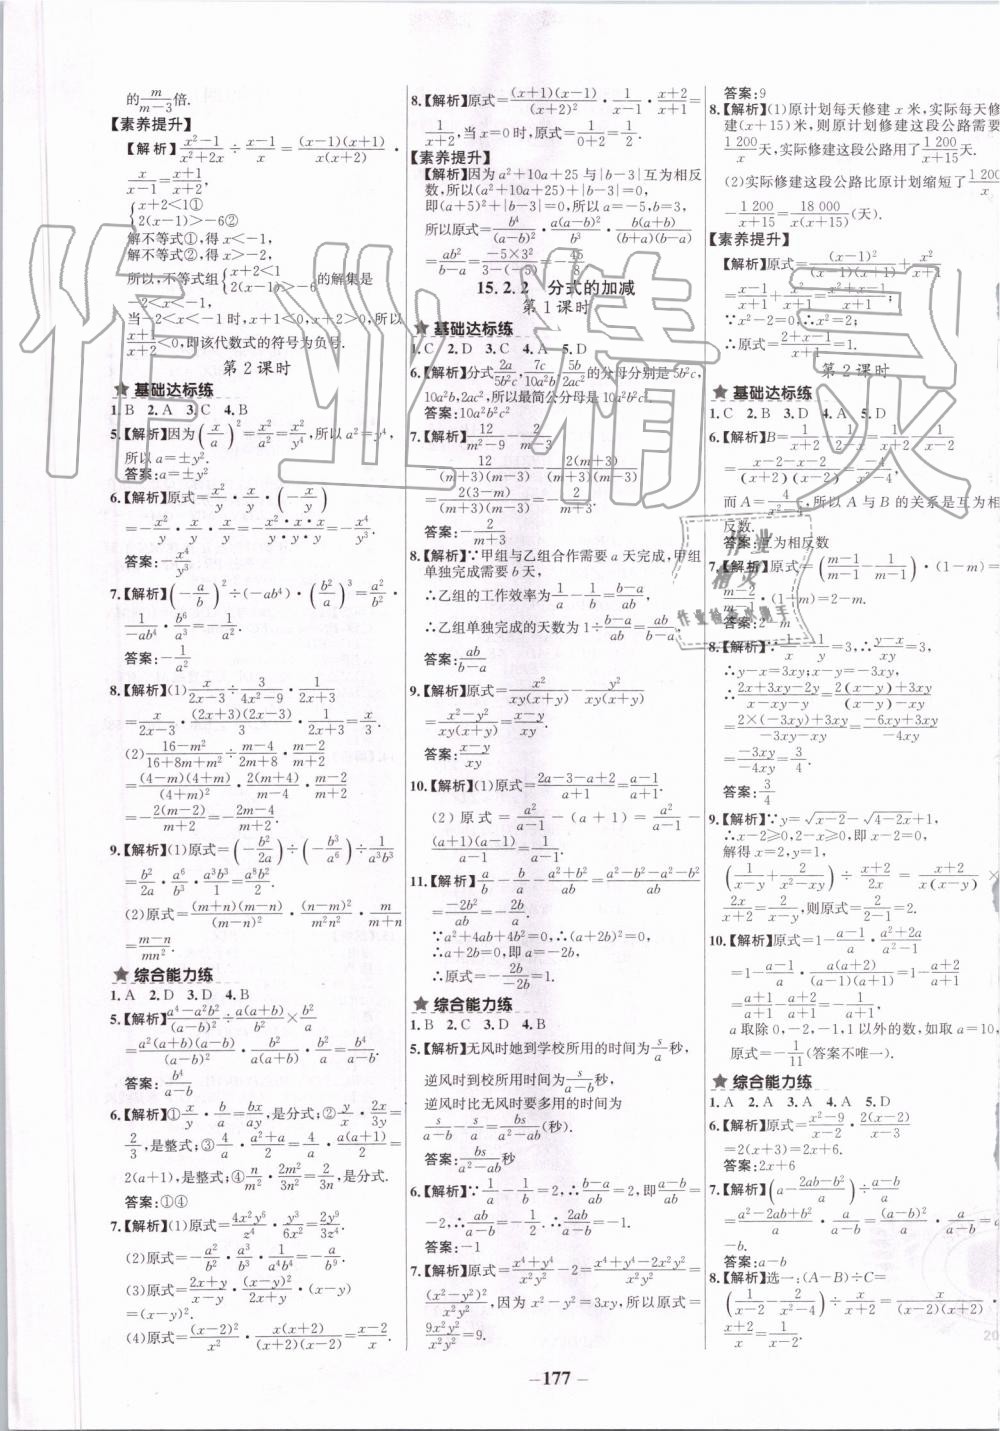 的m/(m-3)倍.
【素养提升】
【解析】(x²-1)/(x²+2x)÷(x-1)/x=(x+1)(x-1)/x(x+2)·
x/(x-1)=(x+1)/(x+2),
{x+2<1①
2(x-1)>-6②
解不等式①,得x<-1,
解不等式②,得x>-2,
所以,不等式组{x+2<1 2(x-1)>-6的解集是
-2<x<-1,
当-2<x<-1时,x+1<0,x+2>0,所
以(x+1)/(x+2)<0,即该代数式的符号为负号.
第2课时
★基础达标练
1.B 2.A 3.C 4.B
5.【解析】因为(x/a)²=x²/a²=x²/y⁴,所以a²=y⁴,
所以a=±y².
答案:a=±y²
6.【解析】原式=x²/y·x/y·(-x/y)
=-x²/y·x/y·x/y=-x²·x·x/y·y·y=-x⁴/y³.
答案:-x⁴/y³
7.【解析】(-a/b)²÷(-ab⁴)·(b²/a)³=a²/b²·
1/-ab⁴·b⁶/a³=-1/a².
答案:-1/a²
8.【解析】(1)x/(2x-3)÷3/(4x²-9)·1/(2x+3)
=x/(2x-3)·(2x+3)(2x-3)/3·1/(2x+3)=x/3.
(2)(16-m²)/(16+8m+m²)÷(m-4)/(2m+8)·(m-2)/(m+2)
=(4-m)(4+m)/(4+m)²·2(m+4)/(m-4)·(m-2)/(m+2)
=-2(m-2)/(m+2)=-(2m-4)/(m+2).
9.【解析】(1)原式=(-b²/2a)÷(-b³/a⁶)÷1/a³b³
=b²/2a·a⁶/b³·a³b³/1=a⁸b²/2.
(2)原式=(m+n)(m-n)/(m-n)²·(n-m)²/m²n²·m/(m+n)
=(m-n)/mn².
★综合能力练
1.A 2.D 3.D 4.B
5.【解析】(a⁴-a²b²)/(a-b)²÷a(a+b)/b²×b²/a
=a²(a+b)(a-b)/(a-b)²·b²/a(a+b)·b²/a=b⁴/(a-b).
答案:b⁴/(a-b)
6.【解析】①x/y·b/a=bx/ay,是分式;②y/x·2x/3y=
2/3,是整式;③4/a·(a²+a)/2=4/a·a(a+1)/2=
2(a+1),是整式;④n/m²·2m²/3n²=2/3n,是分式.
答案:①④
7.【解析】(1)原式=4x²y⁶/z⁴·y³/6x²=2y⁹/3z⁴.
(2)原式=-a²/b²·a³/b³·1/a⁴b⁴=-a/b⁹.
(3)原式=(2x+y)/(x-y)·(x-y)²/(2x+y)·(x-y)
=(x-y)².
(4)原式=(x-2)²/x²·x(x+2)/(x+2)(x-2)=(x-2)/x.
8.【解析】原式=(x+1)(x-1)/(x+2)²·1/(x-1)·(x+2)/(x+1)=
1/(x+2),当x=0时,原式=1/(0+2)=1/2.
【素养提升】
【解析】因为a²+10a+25与|b-3|互为相反
数,所以(a²+10a+25)+|b-3|=0,
即(a+5)²+|b-3|=0,所以a=-5,b=3,
所以原式=b⁴/(a-b)²·a(a-b)²/b³·b(a+b)/(b+a)(b-a)
=ab²/(b-a)=-5×3²/3-(-5)=-45/8.
15.2.2 分式的加减
第1课时
★基础达标练
1.C 2.D 3.C 4.A 5.D
6.【解析】分式2a/5b²c,7c/10a²b,5b/2ac²的分母分别是5b²c,
10a²b,2ac²,所以最简公分母是10a²b²c².
答案:10a²b²c²
7.【解析】12/(m²-9)-2/(m-3)
=12/(m+3)(m-3)-2(m+3)/(m+3)(m-3)
=-2(m-3)/(m+3)(m-3)=-2/(m+3).
答案:-2/(m+3)
8.【解析】∵甲组与乙组合作需要a天完成,甲组
单独完成需要b天,
∴乙组的工作效率为1/a-1/b=(b-a)/ab,
∴乙组单独完成的天数为1÷(b-a)/ab=ab/(b-a).
答案:ab/(b-a)
9.【解析】原式=x²/xy(x+y)-y²/xy(x+y)
=(x²-y²)/xy(x+y)=(x-y)/xy.
答案:(x-y)/xy
10.【解析】(1)原式=(2a-3-a+2)/(a+1)=(a-1)/(a+1).
(2)原式=a²/(a-1)-(a+1)=a²/(a-1)-
(a+1)(a-1)/(a-1)=1/(a-1).
11.【解析】a/b-b/a-(a²+b²)/ab=(a²-b²-a²-b²)/ab
=-2b²/ab=-2b/a.
∵a²+4ab+4b²=0,∴(a+2b)²=0,
∴a+2b=0,即a=-2b,
∴原式=-2b/-2b=1.
★综合能力练
1.B 2.C 3.D 4.B
5.【解析】无风时她到学校所用的时间为s/a秒,
逆风时到校所用时间为s/(a-b)秒,
逆风时比无风时要多用的时间为
s/(a-b)-s/a=bs/a(a-b)=bs/(a²-ab)(秒).
答案:bs/(a²-ab)秒
6.【解析】∵1/a-1/b=2,∴(b-a)/ab=2,即(a-b)/ab=
-2,∴ab/(a-b)=-1/2,∴2ab/(a-b)=-1.
答案:-1
7.【解析】原式=(x⁴+y⁴)/x²y²-2=(x⁴+y⁴-2x²y²)/x²y²=
(x²-y²)²/x²y²,因为x²-y²=3xy,所以原式=
9x²y²/x²y²=9.
答案:9
8.【解析】(1)原计划每天修建x米,实际每天修
建(x+15)米,则原计划修建这段公路需要
1 200/x天,实际修建这段公路用了1 200/(x+15)天.
(2)实际修建这段公路比原计划缩短了1 200/x
-1 200/(x+15)=18 000/x(x+15)(天).
【素养提升】
第2课时
★基础达标练
1.C 2.B 3.D 4.A 5.D
而A=4/(x²-4),所以A与B的关系是互为相
反数.
答案:互为相反数
7.【解析】原式=((m-1)/(m-1)-1/(m-1))·(1-m)=
(m-2)/(m-1)·(1-m)=2-m.
答案:2-m
8.【解析】∵1/x-1/y=3,∴(y-x)/xy=3,
∴y-x=3xy;x-y=-3xy,
∴(2x+3xy-2y)/(x-xy-y)=(2(x-y)+3xy)/((x-y)-xy)
=(2×(-3xy)+3xy)/(-3xy-xy)=(-6xy+3xy)/-4xy
=-3xy/-4xy=3/4.
答案:3/4
9.【解析】∵y=√(x-2)-√(4-2x)+1,
∴x-2≥0,2-x≥0,即x-2=0,
解得x=2,y=1,
(1/(x-y)+2/(x²-xy))÷(x+2)/2x=(x+2)/x(x-y)×
2x/(x+2)=2/(x-y),则原式=2/(2-1)=2.
10.【解析】原式=1-(a-1)/a·(a²+2a)/(a²-1)
=1-(a-1)/a·a(a+2)/(a-1)(a+1)=1-(a+2)/(a+1)
=(a+1)/(a+1)-(a+2)/(a+1)=-1/(a+1),
a取除0,-2,-1,1以外的数,如取a=10,
原式=-1/11(答案不唯一).
★综合能力练
1.A 2.D 3.A 4.A 5.D
6.【解析】原式=(x²-9)/(x-2)·2(x-2)/(x-3)
=2(x+3)=2x+6.
答案:2x+6
7.【解析】(a-(2ab-b²)/a)÷(a-b)/a
=(a²-2ab+b²)/a·a/(a-b)=(a-b)²/a·a/(a-b)=a
-b.
答案:a-b
8.【解析】选一:(A-B)÷C=
(1/(x-2)-2/(x²-4))÷x/(x+2)=x/(x-2)(x+2)·
(x+2)/x=1/(x-2).
-177-
作业精灵
作业
精灵